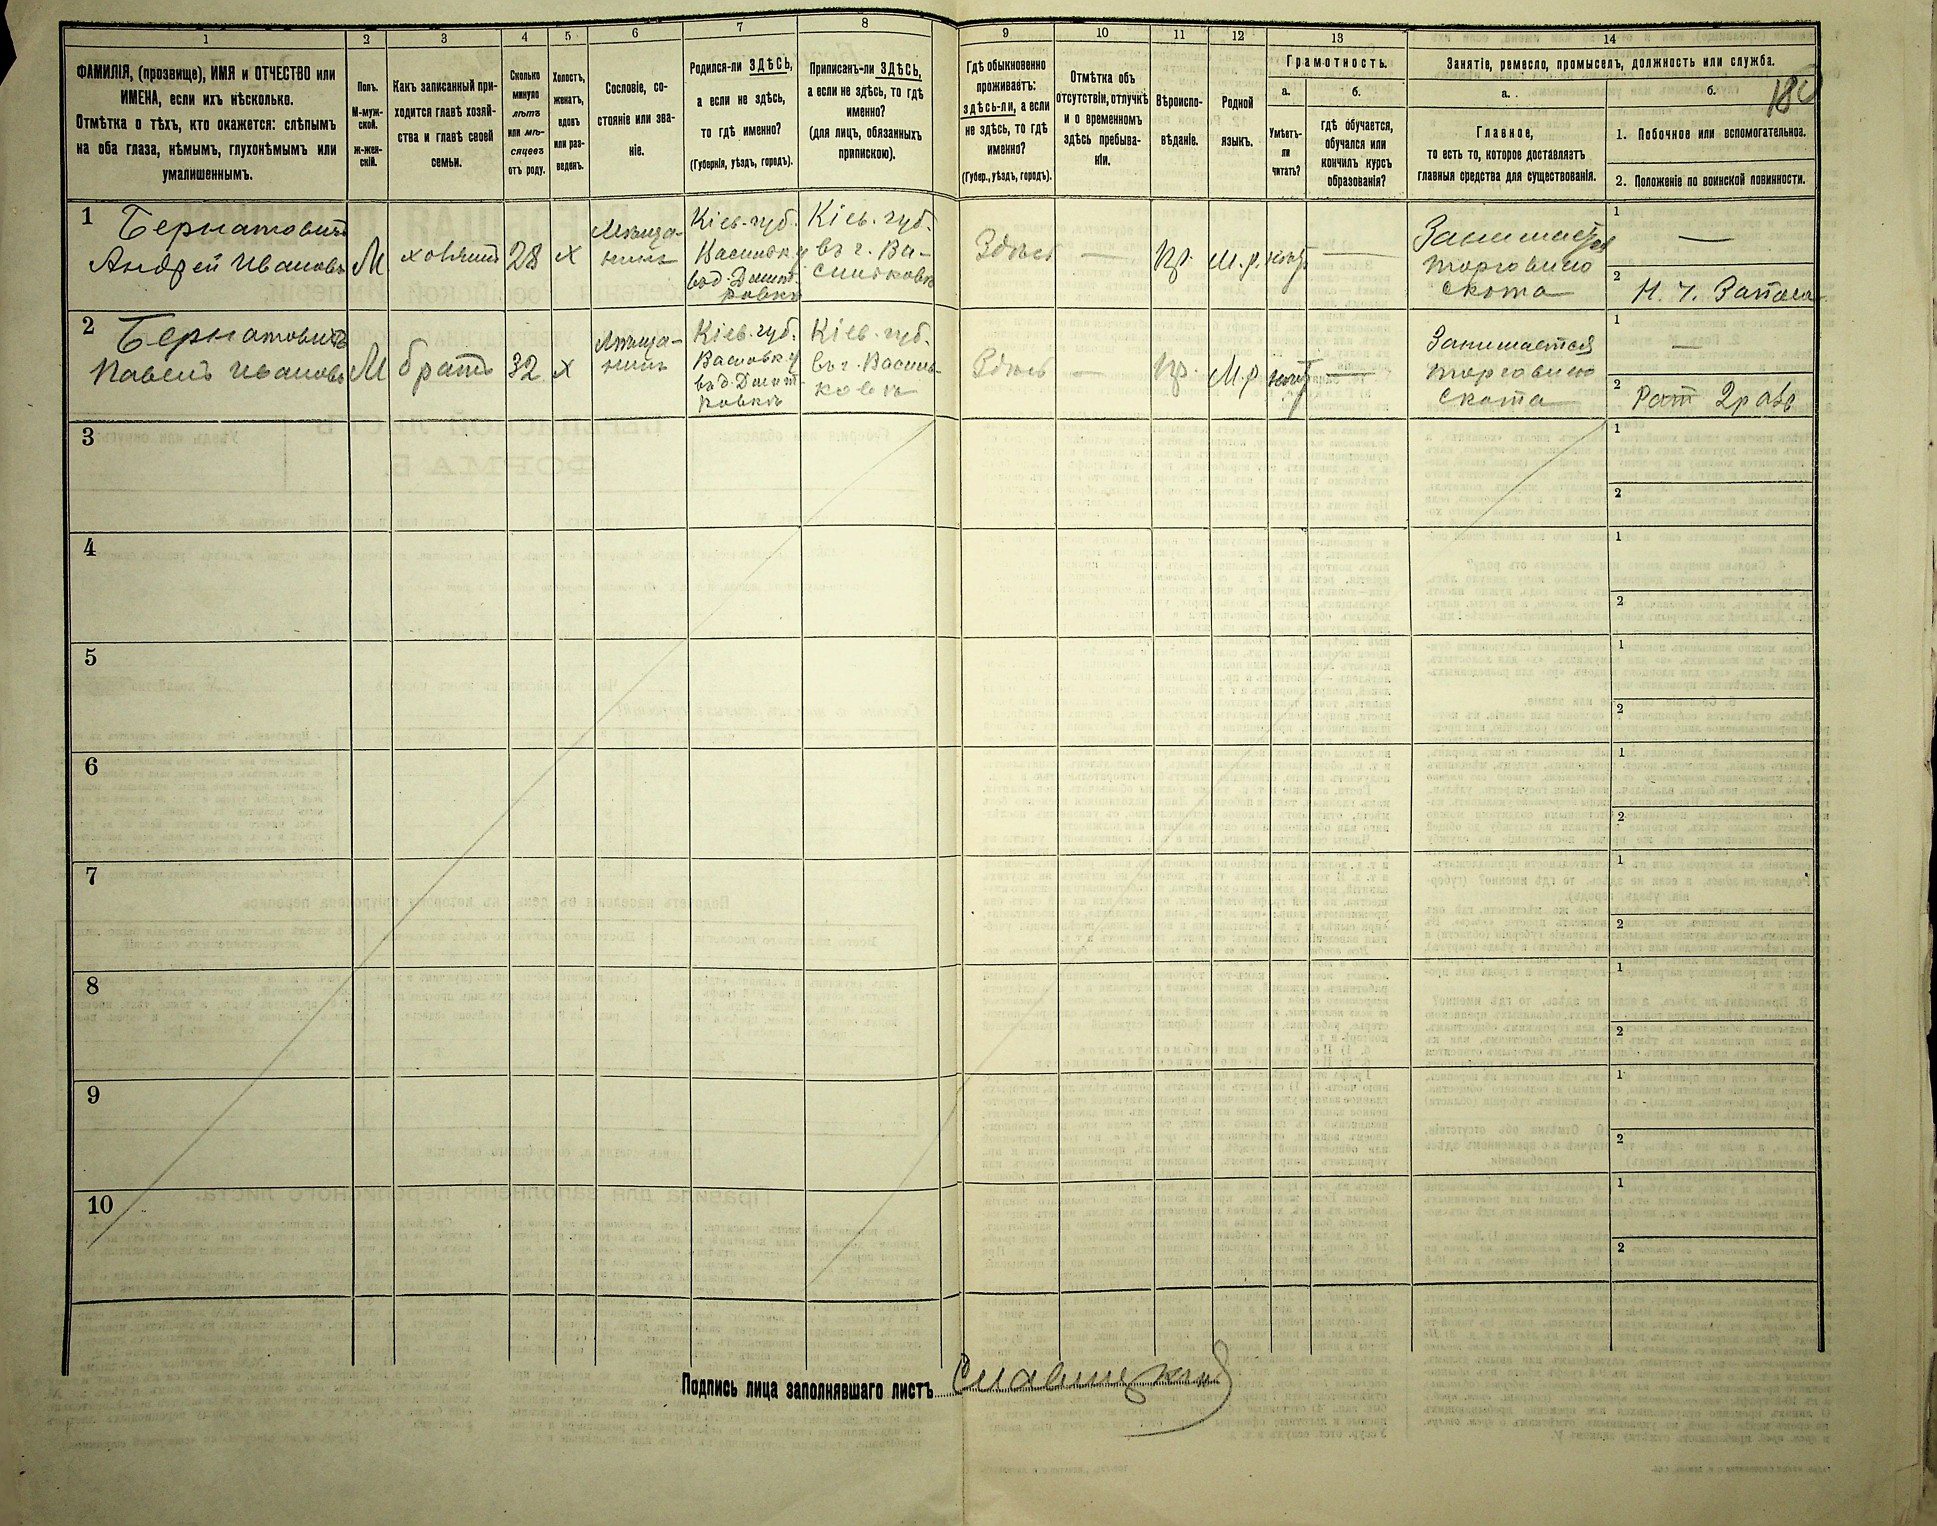 1 2 3 4 5 6 7 8 9 10 11 12 13 14
ФАМИЛІЯ, (прозвище), ИМЯ и ОТЧЕСТВО или
ИМЕНА, если ихъ нѣсколько.
Отмѣтка о тѣхъ, кто окажется: слѣпымъ
на оба глаза, нѣмымъ, глухонѣмымъ или
умалишеннымъ.
Полъ.
М-муж-
ской.
ж-жен-
скій.
Какъ записанный при-
ходится главѣ хозяй-
ства и главѣ своей
семьи.
Сколько
минуло
лѣтъ
или мѣ-
сяцевъ
отъ роду.
Холостъ,
женатъ,
вдовъ
или раз-
веденъ.
Сословіе, со-
стояніе или зва-
ніе.
Родился-ли ЗДѢСЬ,
а если не здѣсь,
то гдѣ именно?
(Губернія, уѣздъ, городъ).
Приписанъ-ли ЗДѢСЬ,
а если не здѣсь, то гдѣ
именно?
(для лицъ, обязанныхъ
припискою).
Гдѣ обыкновенно
проживаетъ:
здѣсь-ли, а если
не здѣсь, то гдѣ
именно?
(Губер., уѣздъ, городъ).
Отмѣтка объ
отсутствіи, отлучкѣ
и о временномъ
здѣсь пребыва-
ніи.
Вѣроиспо-
вѣданіе.
Родной
языкъ.
Грамотность.
а.
Умѣетъ-
ли
читать?
б.
гдѣ обучается,
обучался или
кончилъ курсъ
образованія?
Занятіе, ремесло, промыселъ, должность или служба.
а.
Главное,
то есть то, которое доставляетъ
главныя средства для существованія.
б.
1. Побочное или вспомогательное.
2. Положеніе по воинской повинности.
1
Бернатовичъ
Андрей Ивановъ
М
хозяинъ
28
х
Мѣща-
нинъ
Кіев. губ.
Васильк. у
въ д. Дмит-
ровкѣ
Кіев. губ.
въ г. Ва-
сильковѣ
Здѣсь
—
пр.
М. р.
нѣтъ
—
Занимается
торговлею
скота
1 —
2 Н. ч. Запаса
2
Бернатовичъ
Павелъ Ивановъ
М
братъ
32
х
Мѣща-
нинъ
Кіев. губ.
Васильк. у
въ д. Дмит-
ровкѣ
Кіев. губ.
въ г. Василь-
ковѣ
Здѣсь
—
пр.
М. р
нѣтъ
—
Занимается
торговлею
скота
1 —
2 Рат 2 раз
3 1
2
4 1
2
5 1
2
6 1
2
7 1
2
8 1
2
9 1
2
10 1
2
Подпись лица заполнявшаго листъ